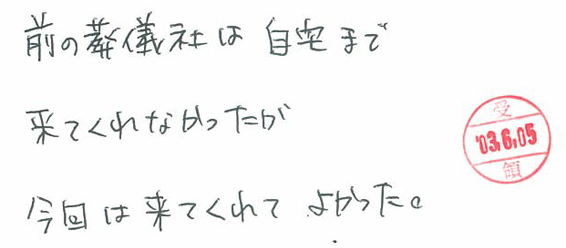 前の葬儀社は自宅まで
来てくれなかったが
今回は来てくれてよかった。
受
'03.6.05
領